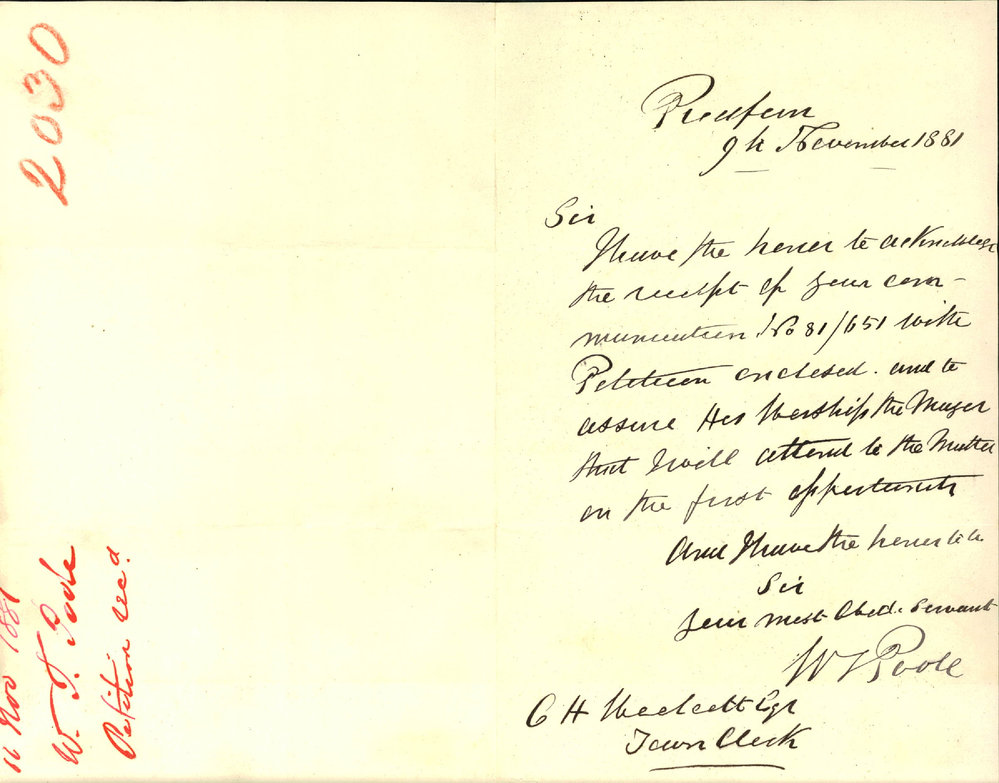 2030
11 Nov 1881
W. T. Poole
Petition rec^d.
Redfern
9th November 1881
Sir
I have the honor to acknowledge
the receipt of your com-
munication No 81/651 with
Petition enclosed. and to
assure His Worship the Mayor
that I will attend to the Matter
on the first opportunity
And I have the honor to be
Sir
Your most Obed. Servant
W T Poole
C H Woolcott Esqr
Town Clerk